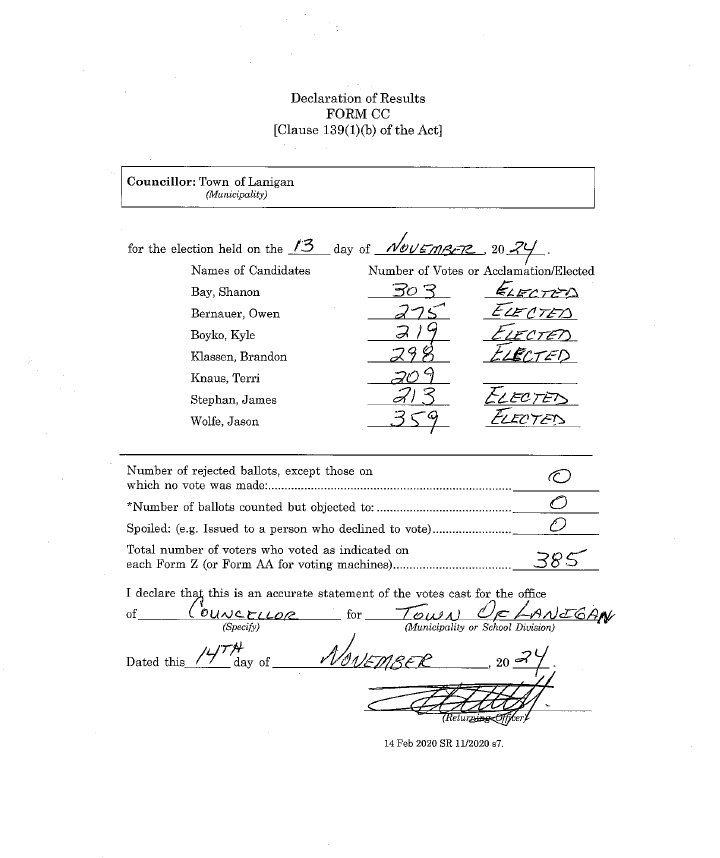 Declaration of Results
FORM CC
[Clause 139(1)(b) of the Act]
Councillor: Town of Lanigan
(Municipality)
for the election held on the 13 day of NOVEMBER, 20 24.
Names of Candidates Number of Votes or Acclamation/Elected
Bay, Shanon 303 ELECTED
Bernauer, Owen 275 ELECTED
Boyko, Kyle 219 ELECTED
Klassen, Brandon 298 ELECTED
Knaus, Terri 209
Stephan, James 213 ELECTED
Wolfe, Jason 359 ELECTED
Number of rejected ballots, except those on
which no vote was made: 0
*Number of ballots counted but objected to: 0
Spoiled: (e.g. Issued to a person who declined to vote) 0
Total number of voters who voted as indicated on
each Form Z (or Form AA for voting machines) 385
I declare that this is an accurate statement of the votes cast for the office
of COUNCELLOR for TOWN OF LANIGAN
(Specify) (Municipality or School Division)
Dated this 14TH day of NOVEMBER, 20 24.
(Returning Officer)
14 Feb 2020 SR 11/2020 s7.